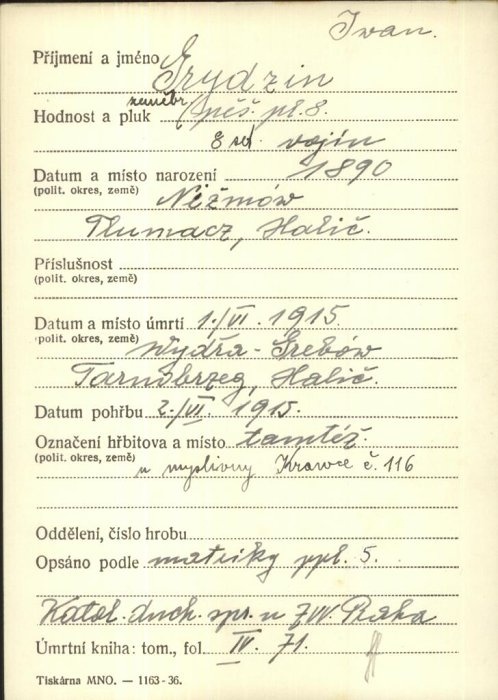 Ivan.
Příjmení a jméno Grydzin
zeměbr.
Hodnost a pluk pěš. pl. 8.
8 setn. vojín
Datum a místo narození 1890
(polit. okres, země) Nižmów
Tlumacz, Halič.
Příslušnost
(polit. okres, země)
Datum a místo úmrtí 1./VI. 1915.
(polit. okres, země) Wydrza-Grebów
Tarnobrzeg, Halič.
Datum pohřbu 2./VI. 1915.
Označení hřbitova a místo tamtéž.
(polit. okres, země) u myslivny Krawce č. 116
Oddělení, číslo hrobu
Opsáno podle matriky ppl. 5.
Katol. duch. spr. u ZVV. Praha
Úmrtní kniha: tom., fol. IV. 71.
Tiskárna MNO. — 1163-36.